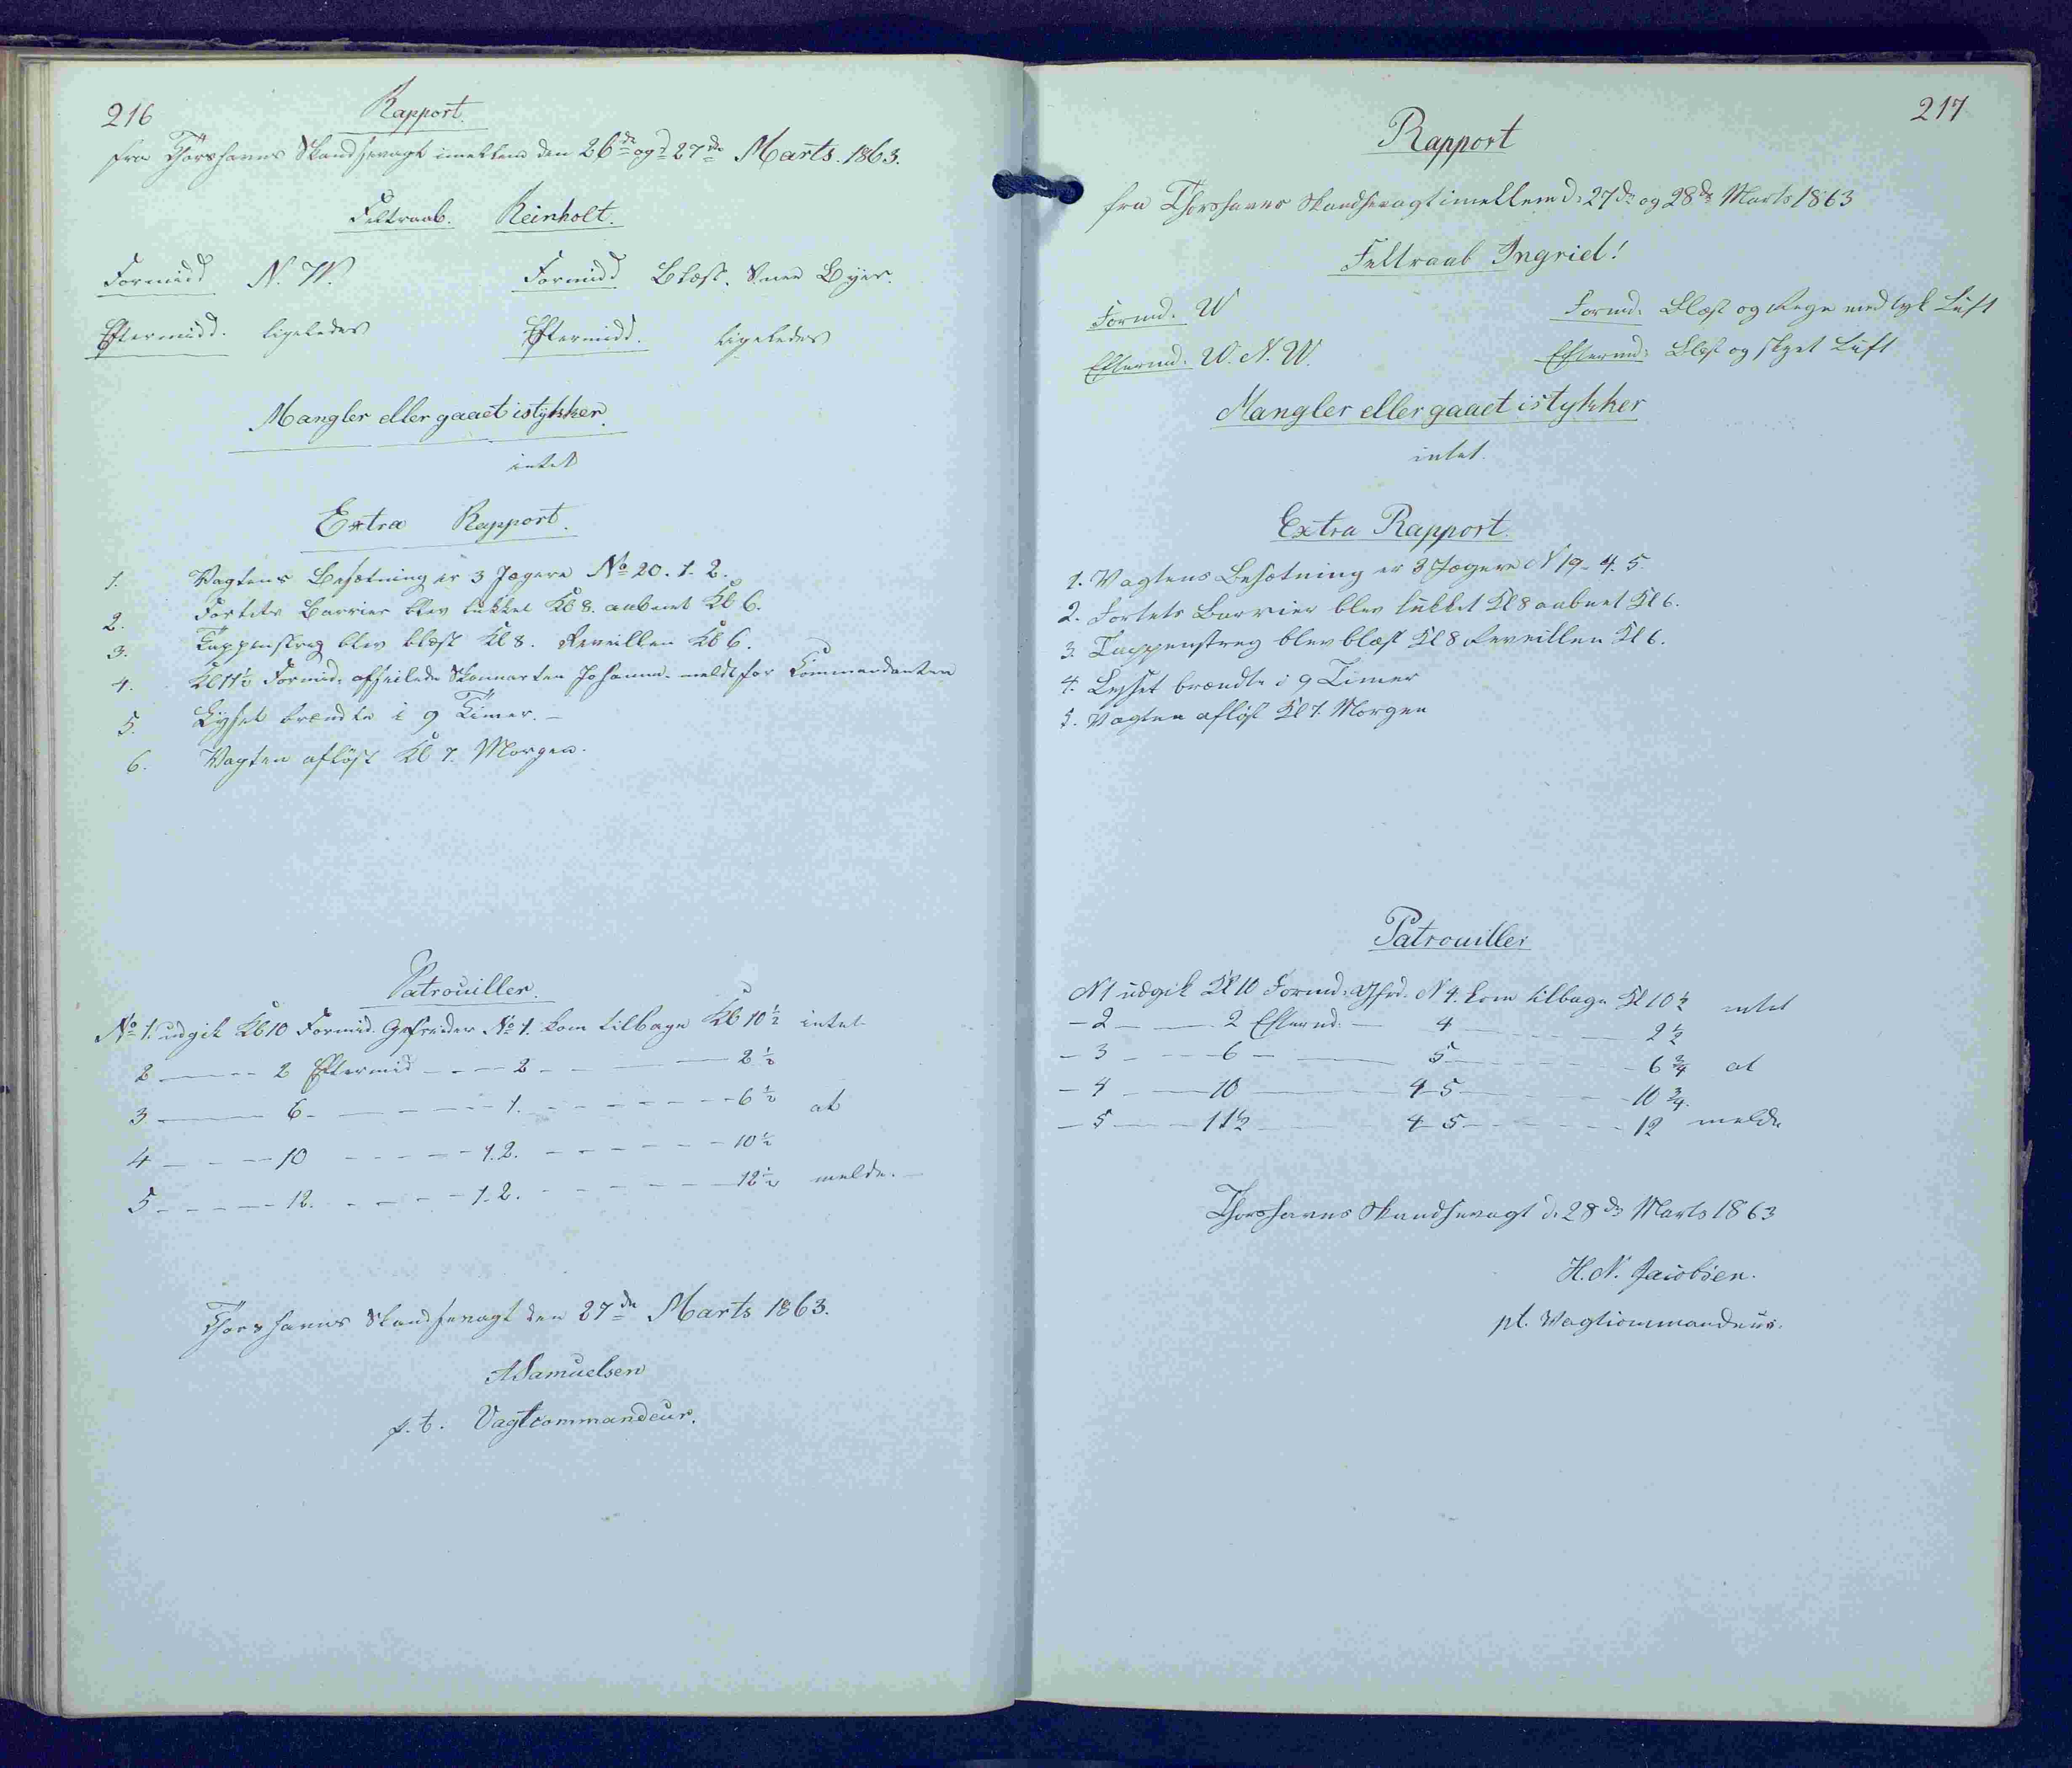 216
Rapport.
fra Thorshavns Skandsevagt imellem den 26de og 27de Marts. 1863.
Feltraab. Reinholt.
Formidd N. W. Formidd Blæst. Snee Byer.
Eftermidd. ligeledes Eftermidd. ligeledes
Mangler eller gaaet istykker.
intet
Extra Rapport.
1. Vagtens Besætning er 3 Jægere No 20. 1. 2.
2. Fortets Barrier blev lukket Kl 8. aabnet Kl 6.
3. Tappenstreg blev blæst Kl 8. Reveillen Kl 6.
4. Kl 11½ Formid. afseilede Skonnerten Johanne. meldt for Commendanten
5. Lyset brændte i 9 Timer. –
6. Vagten afløst Kl 7. Morgen.
Patrouiller.
No 1. udgik Kl 10 Formid. Gefreider No 1. kom tilbage Kl 10½ intet
2 — — 2 Eftermid — — 2 — — 2½
3 — — 6 — — 1. — — 6½ at
4 — — 10 — — 1. 2. — — 10½
5 — — 12. — — 1. 2. — — 12½ melde. –
Thorshavns Skandsevagt den 27de Marts 1863.
A Samuelsen
p. t. Vagtcommandeur.
217
Rapport
fra Thorshavns Skandsevagt imellem d. 27de og 28de Marts 1863
Feltraab Ingried!
Formd. W Formd. Blæst og Regn med tyk Luft
Eftermd. W. N. W. Eftermd. Blæst og skyet Luft
Mangler eller gaaet istykker
intet.
Extra Rapport.
1. Vagtens Besætning er 3 Jægere N 19. 4. 5.
2. Fortets Barrier blev lukket Kl 8 aabnet Kl 6.
3. Tappenstreg blev blæst Kl 8 Reveillen Kl 6.
4. Lyset brændte i 9 Timer
5. Vagten afløst Kl 7. Morgen
Patrouiller
N 1 udgik Kl 10 Formd. Gfrd. N 4. kom tilbage Kl 10½ intet
– 2 — — 2 Eftermd. — 4 — — 2½
– 3 — — 6 — — 5 — — 6¾ at
– 4 — — 10 — — 4 5 — — 10¾.
– 5 — — 11½ — — 4 5 — — 12 melde
Thorshavns Skandsevagt d. 28de Marts 1863
H. N. Jacobsen.
pt. Vagtcommandeur.